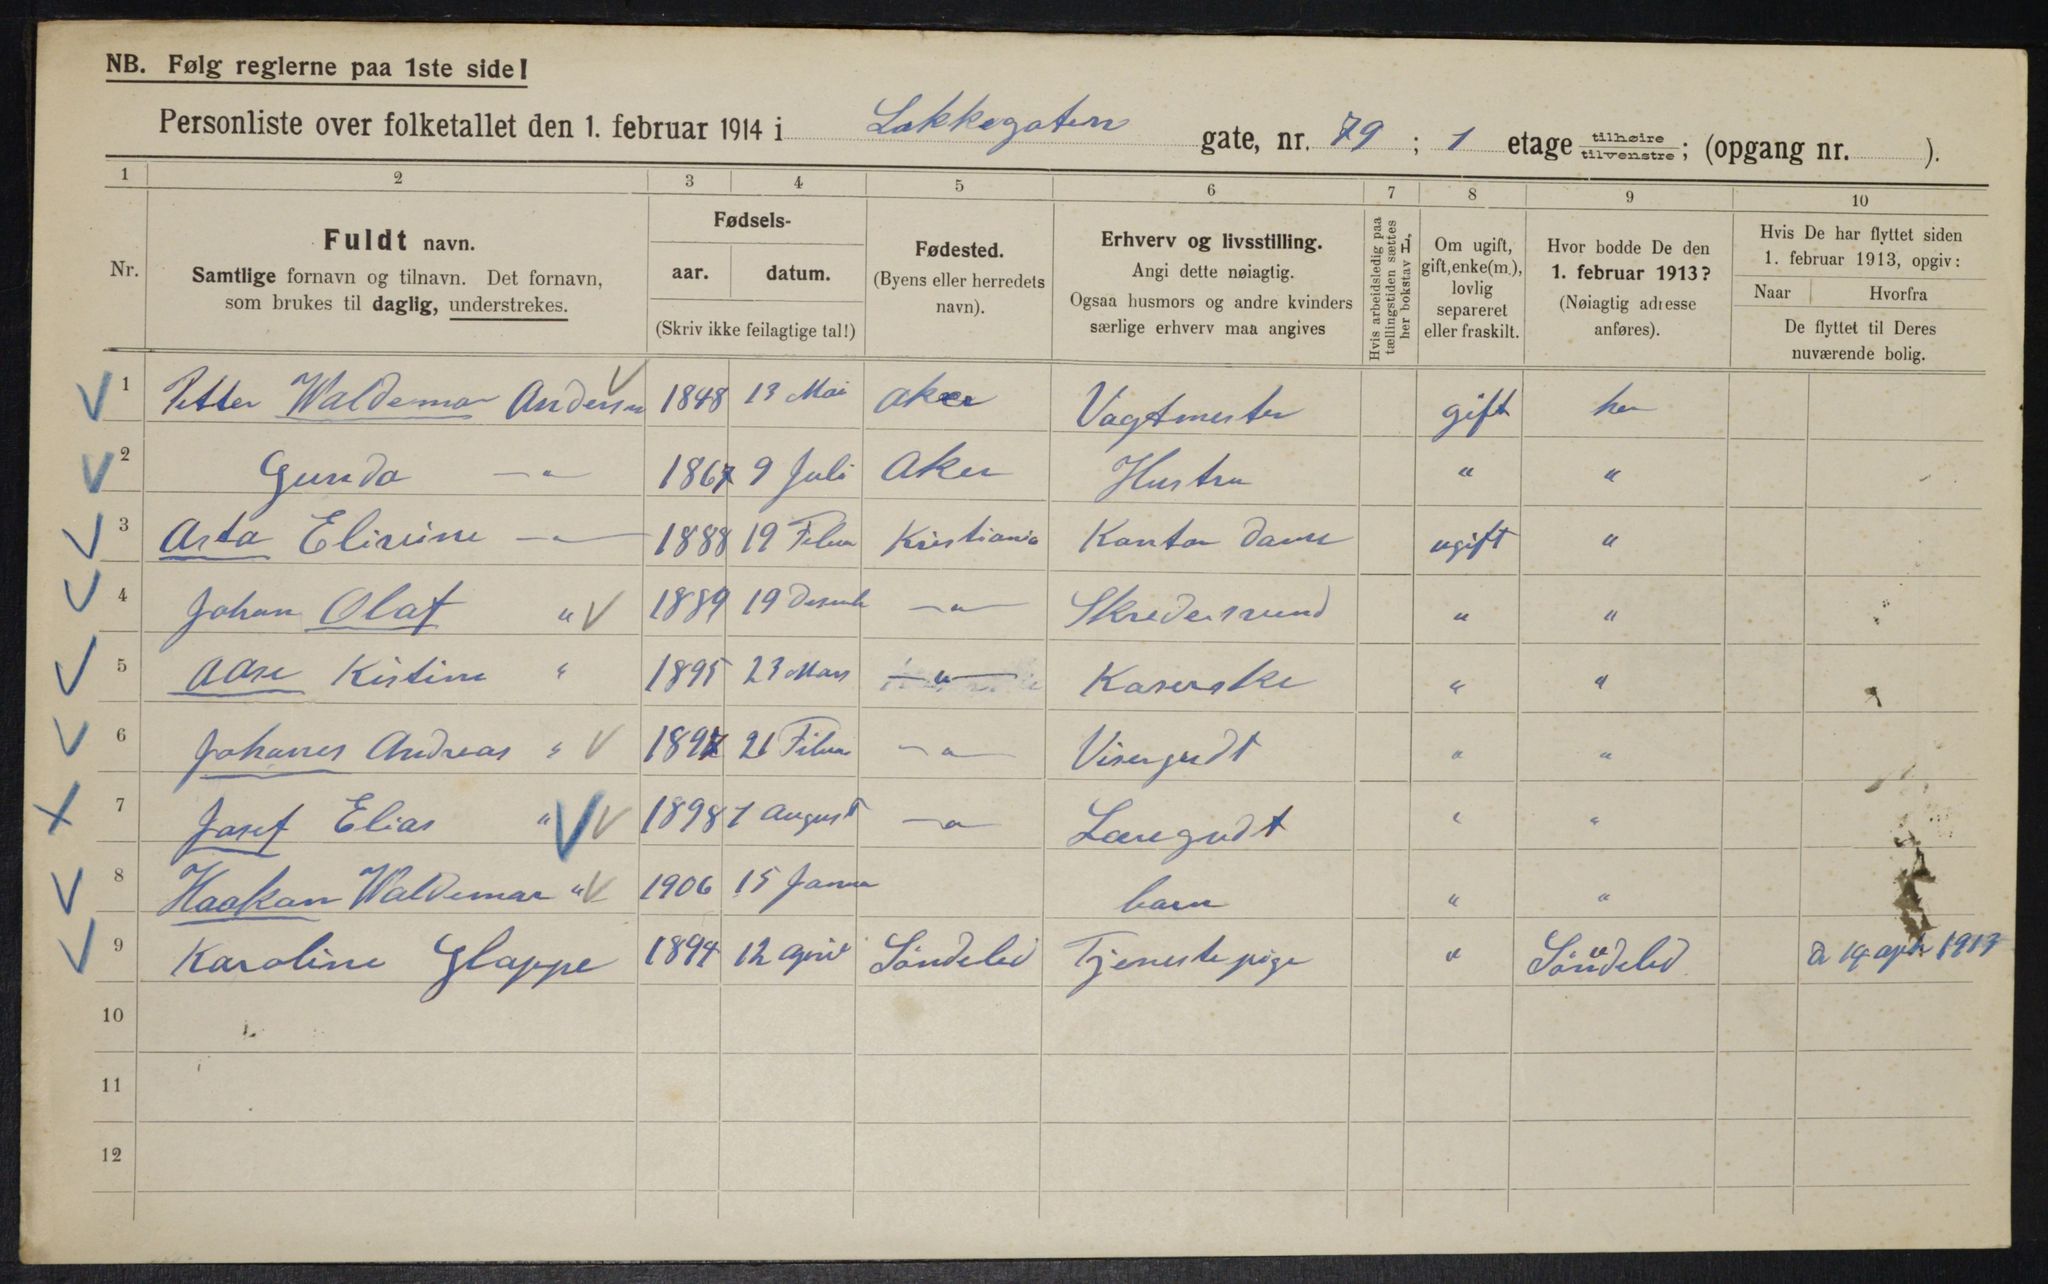 NB. Følg reglerne paa 1ste side!
Personliste over folketallet den 1. februar 1914 i Lakkegaten gate, nr. 79 ; 1 etage tilhøire tilvenstre; (opgang nr. ).
1 2 3 4 5 6 7 8 9 10
Nr.
Fuldt navn.
Samtlige fornavn og tilnavn. Det fornavn,
som brukes til daglig, understrekes.
Fødsels-
aar. datum.
(Skriv ikke feilagtige tal!)
Fødested.
(Byens eller herredets
navn).
Erhverv og livsstilling.
Angi dette nøiagtig.
Ogsaa husmors og andre kvinders
særlige erhverv maa angives
Hvis arbeidsledig paa
tællingstiden sættes
her bokstav L,
Om ugift,
gift, enke(m.),
lovlig
separeret
eller fraskilt.
Hvor bodde De den
1. februar 1913?
(Nøiagtig adresse
anføres).
Hvis De har flyttet siden
1. februar 1913, opgiv:
Naar Hvorfra
De flyttet til Deres
nuværende bolig.
1 Petter Waldemar Andersen 1848 13 Mai Aker Vagtmester gift her
2 Gunda —"— 1867 9 Juli Aker Hustru " "
3 Asta Elivine —"— 1888 19 Febru Kristiania Kontor dame ugift "
4 Johan Olaf " 1889 19 Desemb —"— Skredersvend " "
5 Aase Kistine " 1895 23 Mars —"— Kaserske " "
6 Johannes Andreas " 1897 21 Febru —"— Visergudt " "
7 Josef Elias " 1898 1 August —"— Læregudt " "
8 Haakon Waldemar " 1906 15 Janua barn " "
9 Karoline Glappe 1894 12 April Söndeled Tjenestepige " Söndeled d 14 apr 1913
10
11
12